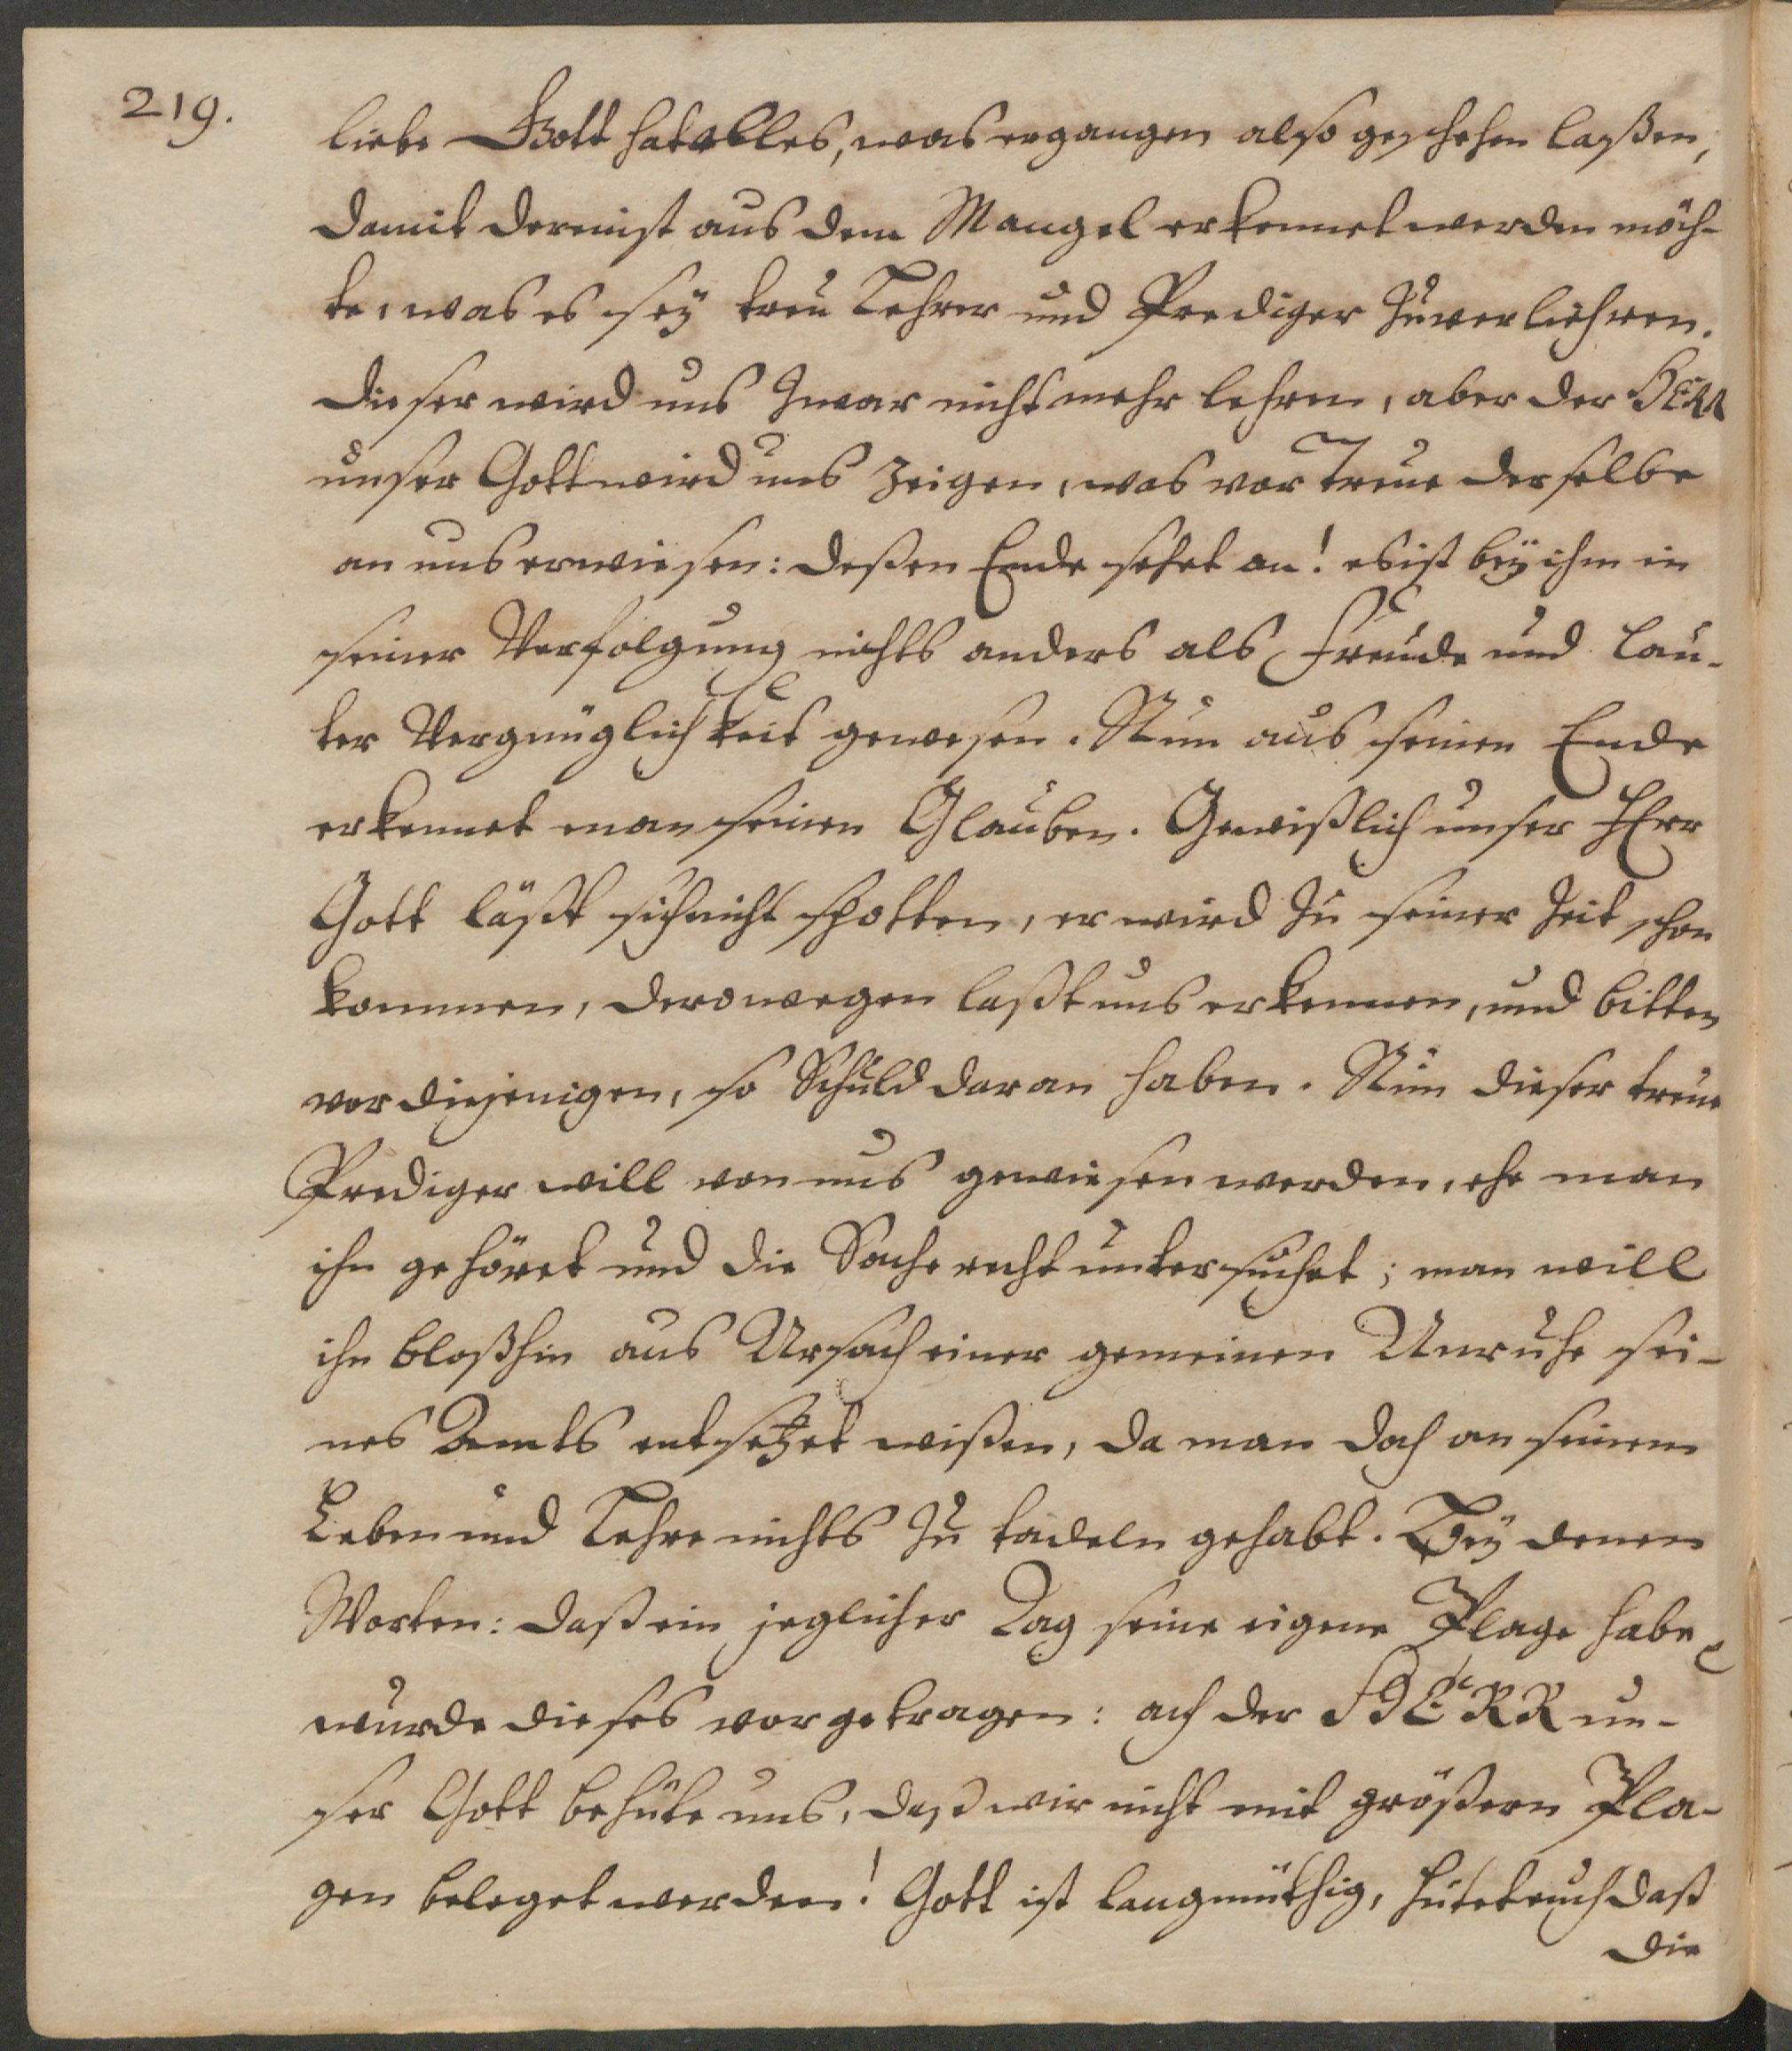 219.
liebe Gott hat alles, was ergangen also geschehen laßen,
damit dermist aus dem Mangel erkennet werden möch-
te, was es sey treu Lehrer und Prediger zuverliehren.
dieser wird uns zwar nicht mehr lehren, aber der HERR
unser Gott wird uns zeigen, was vor Treue derselbe
an uns erwiesen: deßen Ende sehet an! es ist bey ihm in
seiner Verfolgung nichts anders als Freude und lau-
ter Vergnüglichkeit gewesen. Nun aus seinen Ende
erkennet man seinen Glauben. Gewißlich unser HErr
Gott läßt sich nicht spotten, er wird zu seiner Zeit schon
kommen, derowegen laßt uns erkennen, und bitten
vor diejenigen, so Schuld daran haben. Nun dieser treue
Prediger will von uns gewiesen werden, ehe man
ihn gehöret und die Sache recht untersuchet; man will
ihn bloßhin aus Ursach einer gemeinen Unruhe sei-
nes Amts entsetzet wißen, da man doch an seinem
Leben und Lehre nichts zu tadeln gehabt. Bey denen
Worten: daß ein jeglicher Tag seine eigene Plage habe,
wurde dieses vorgetragen: ach der HERR un-
ser Gott behüte uns, daß wir nicht mit größern Pla-
gen beleget werden! Gott ist langmüthig, hütet euch daß
die